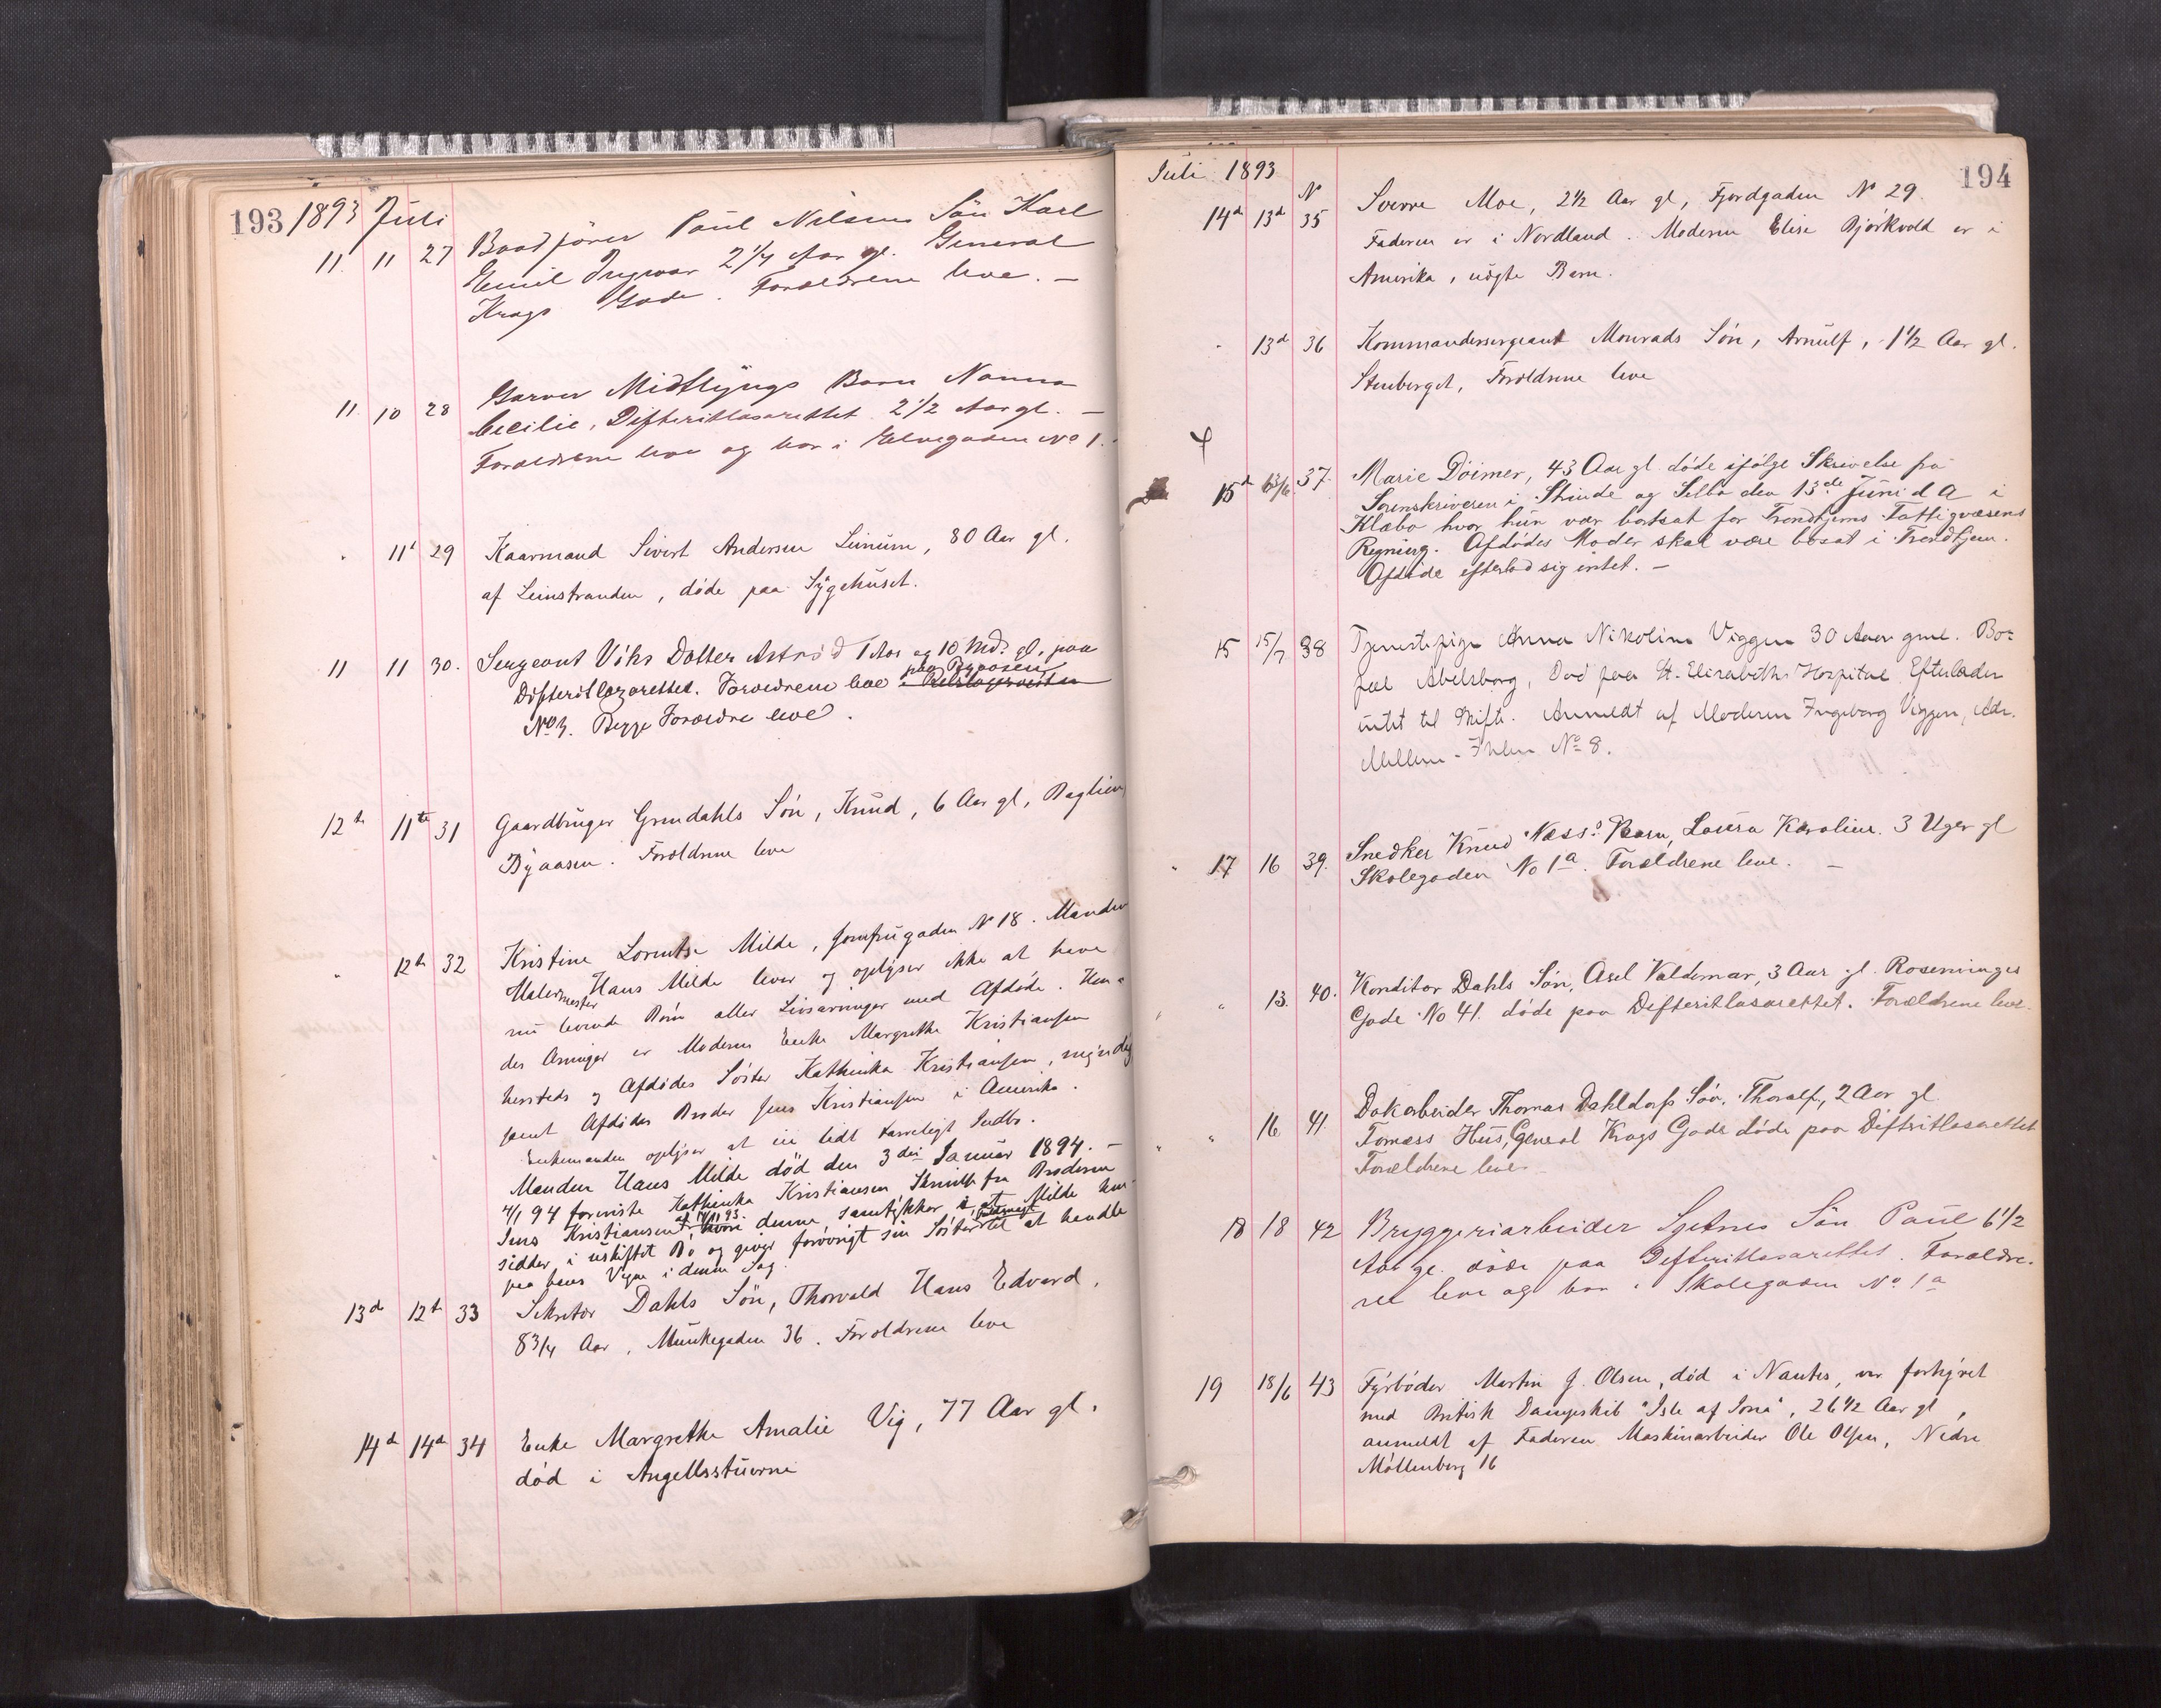 193 1893 Juli
11. 11 27 Baadfører Paul Nilsens Søn Karl
Emil Ingwar 2 1/4 Aar gl. General
Krags Gade. Forældrene leve. —
11. 10 28 Garver Midtlyngs Barn Nanna
Cecilie, Difteritlasarettet 2 1/2 Aar gl. —
Forældrene leve og bor i Elvegaden No 1.
" 11t 29 Kaarmand Sivert Andersen Leinum, 80 Aar gl.
af Leinstranden, døde paa Sygehuset.
11 11 30. Sergeant Viks Datter Astrid 1 Aar og 10 Md. gl. paa
Difteritlazarettet. Forældrene leve paa Byaasen
No 3. Begge Forældre leve.
12te 11te 31 Gaardbruger Grendahls Søn, Knud, 6 Aar gl,
Byaasen. Forældrene leve
" 12te 32 Kristine Lorentse Milde, Jomfrugaden No 18. Manden
Malermester Hans Milde lever og oplyser ikke at have
nu levende Børn eller Livsarvinger med Afdøde. Hen-
des Arvinger er Moderen Enke Margrethe Kristiansen
hersteds og Afdødes Søster Kathinka Kristiansen, myndig
samt Afdødes Broder Jens Kristiansen i Amerika.
Enkemanden oplyser at eie lidt tarveligt Indbo.
Manden Hans Milde død den 3die Januar 1894. —
4/1 94 foreviste Kathinka Kristiansen Skrivelse fra Broderen
Jens Kristiansen hvori denne samtykker i, at Milde hen-
sidder i uskiftet Bo og giver forøvrigt sin Søster Fuldmagt til at handle
paa hans Vegne i denne Sag.
13d 12te 33 Sekretær Dahls Søn, Thorvald Hans Edvard,
8 3/4 Aar, Munkegaden 36. Forældrene leve
14d 14d 34 Enke Margrethe Amalie Vig, 77 Aar gl.
død i Angellsstuerne
Juli 1893 194
N
14d 13d 35 Sverre Moe, 2 1/2 Aar gl, Fjordgaden No 29.
Faderen er i Nordland. Moderen Elise Bjørkvold er i
Amerika, uægte Barn.
" 13d 36 Kommandersergeant Monrads Søn, Arnulf, 1 1/2 Aar gl.
Stenberget, Forældrene leve
15d 13/6 37 Marie Döimer, 43 Aar gl. døde ifølge Skrivelse fra
Sorenskriveren i Strinde og Selbo den 13de Juni d A i
Klæbo hvor hun var bortsat for Trondhjems Fattigvæsens
Regning. Afdødes Moder skal være bosat i Trondhjem.
Afdøde efterlod sig intet. —
15 15/7 38 Tjenestepige Anna Nikoline Viggen 30 Aar gml. Bo-
pæl Abelsborg, Død paa St. Elisabeths Hospital. Efterlader
intet til Skifte. Anmeldt af Moderen Ingeborg Viggen, Adr.
Mellem-Ihlen No 8.
" 17 16 39. Snedker Knud Næss's Barn, Laura Karoline. 3 Uger gl
Skolegaden No 1a. Forældrene leve. —
" " 13 40. Konditor Dahls Søn, Axel Valdemar, 3 Aar gl. Rosenminges
Gade No 41. døde paa Defteritlasarettet. Forældrene leve.
" " 16 41. Dokarbeider Thomas Dahldorfs Søn, Thoralf, 2 Aar gl
Tomæss Hus, General Krags Gade døde paa Difteritlasarettet
Forældrene leve
18 18 42 Bryggeriarbeider Sjetnes Søn Paul 6 1/2
Aar gl. døde paa Defteritlasarettet. Forældre-
ne leve og bor i Skolegaden No 1a
19 18/6 43 Fyrbøder Martin J. Olsen, død i Nantes, var forhyret
med Britisk Dampskib "Isle af Iona", 26 1/2 Aar gl,
anmeldt af Faderen Maskinarbeider Ole Olsen, Nedre
Møllenberg 16